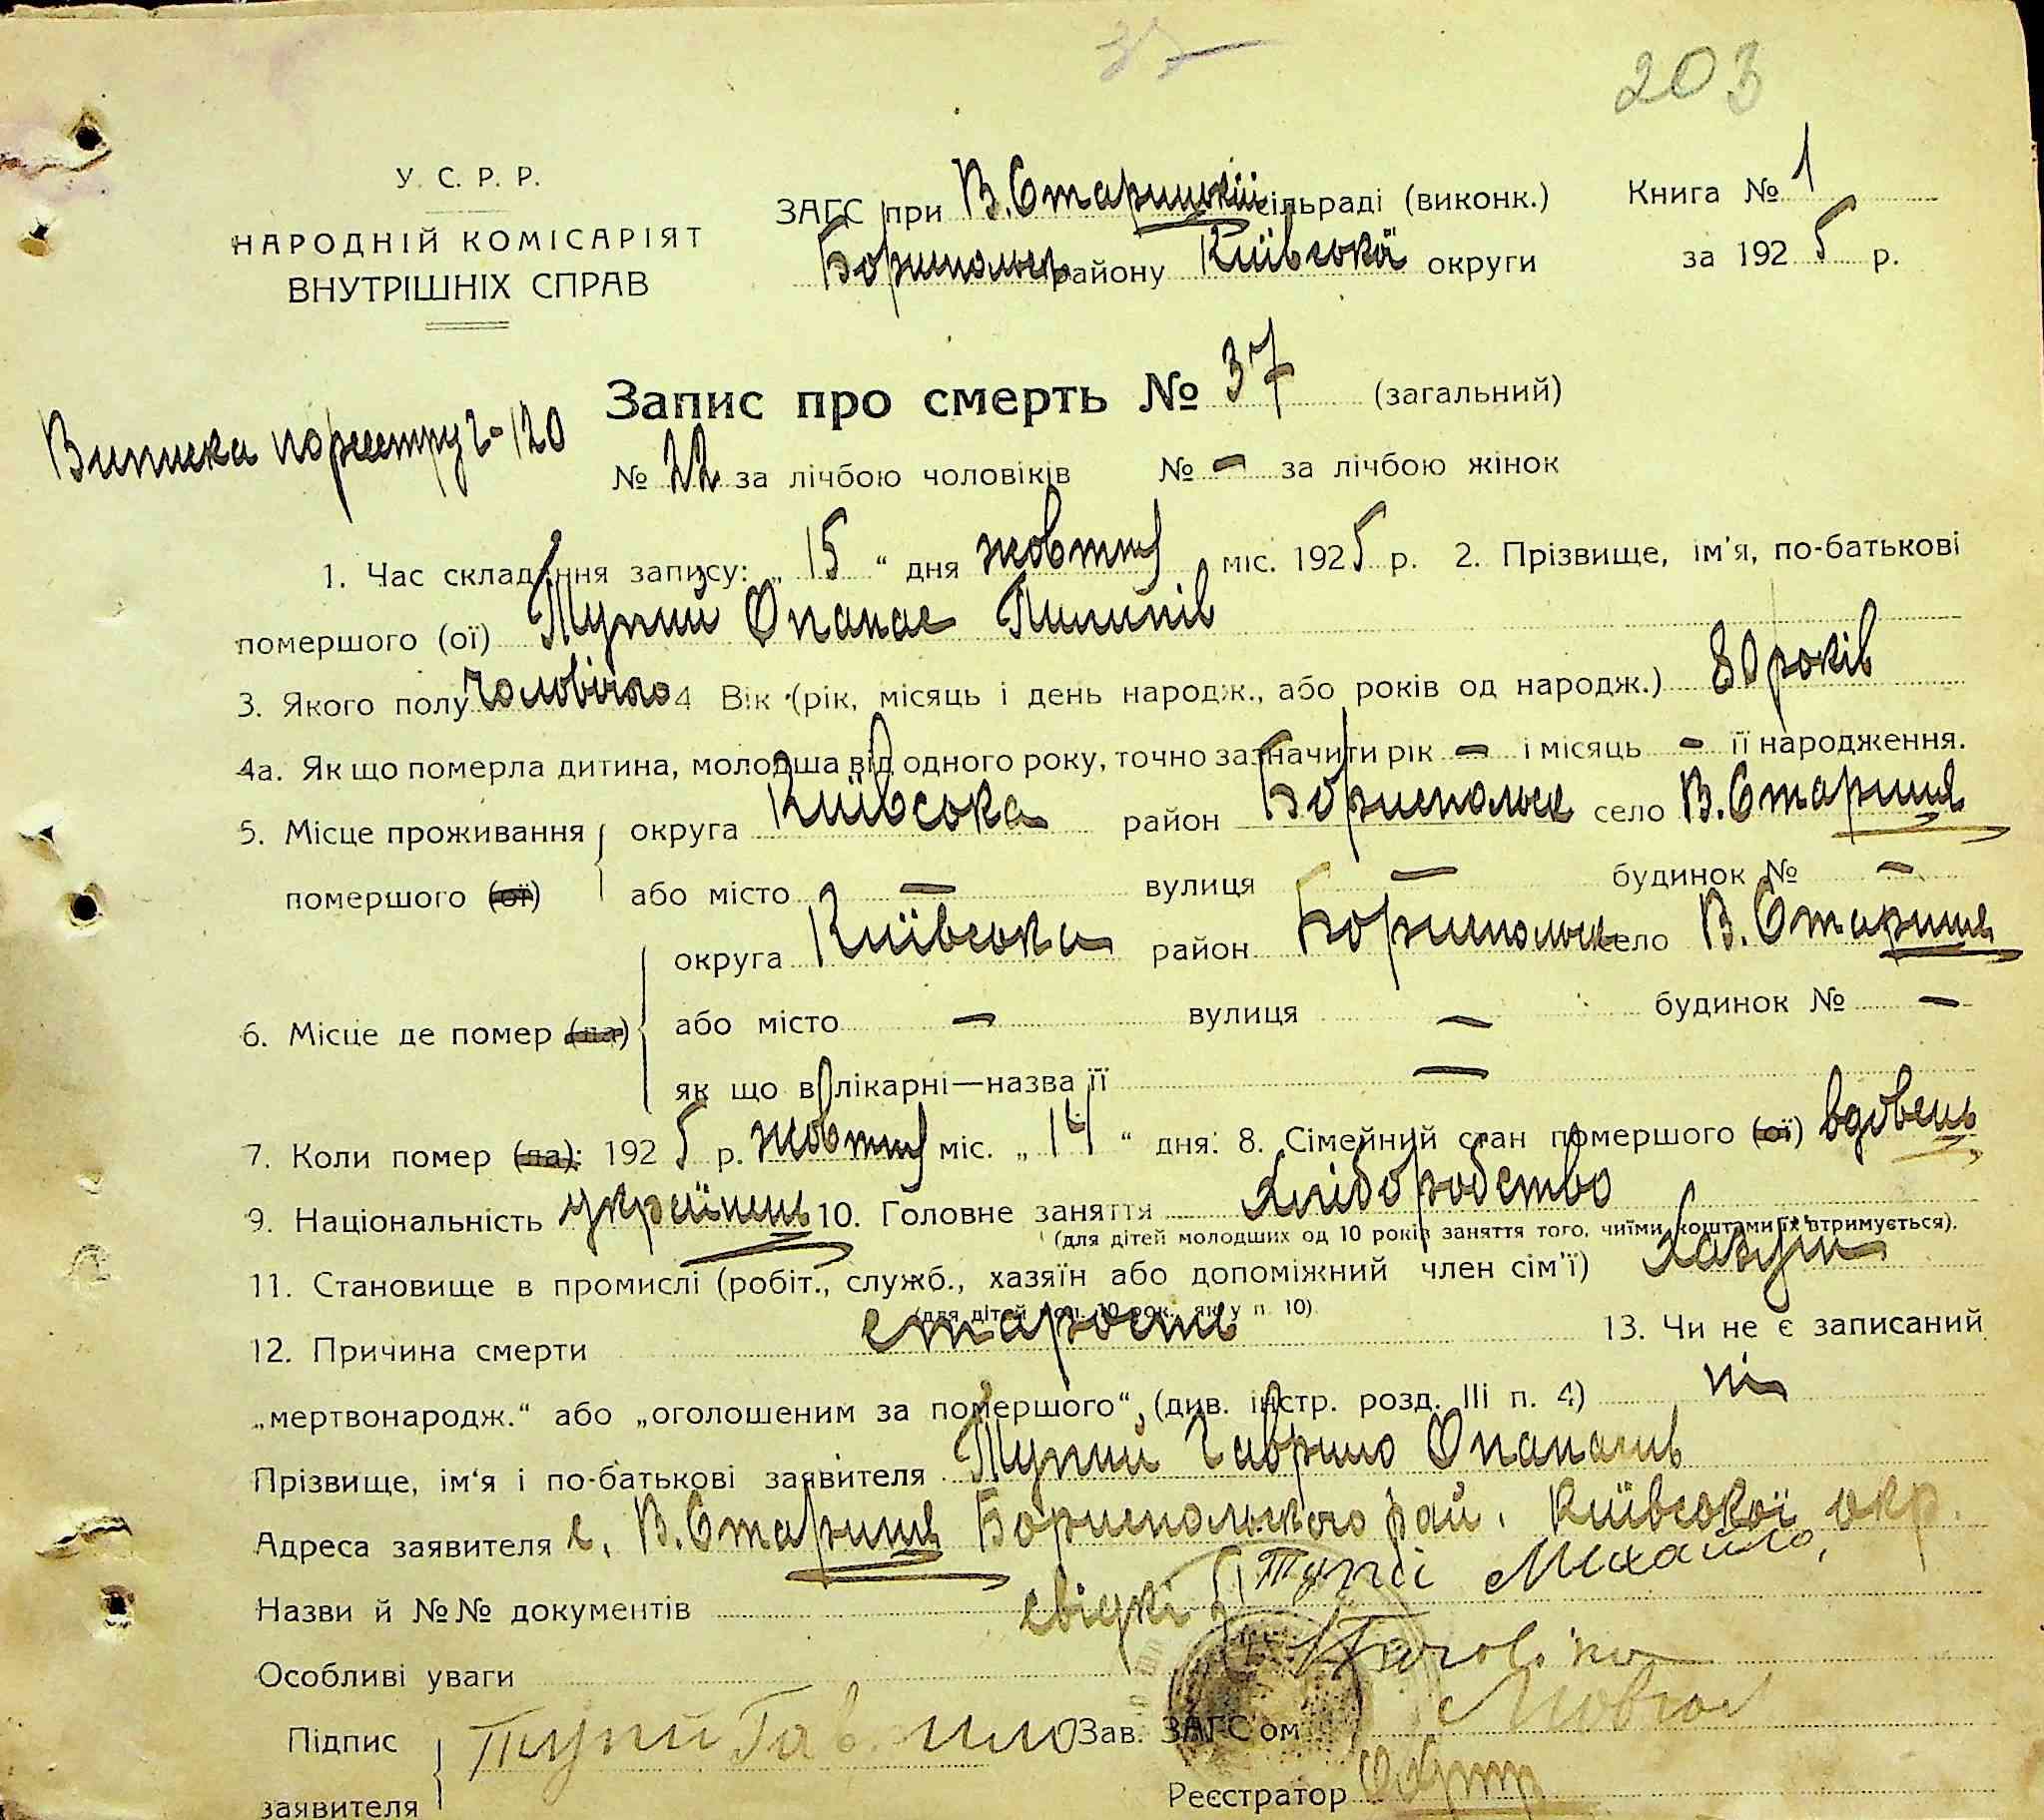 37
203
У. С. Р. Р.
НАРОДНІЙ КОМІСАРІЯТ
ВНУТРІШНІХ СПРАВ
ЗАГС при В.Старицькій сільраді (виконк.)
Бориспольск району Київської округи
Книга № 1
за 1925 р.
Запис про смерть № 37 (загальний)
Виписка по реєстру 2-120
№ 22 за лічбою чоловіків № - за лічбою жінок
1. Час складання запису: „15“ дня жовтня міс. 1925 р. 2. Прізвище, ім'я, по-батькові
помершого (ої) Тупий Опанас Пилипів
3. Якого полу чоловічого 4 Вік (рік, місяць і день народж., або років од народж.) 80 років
4а. Як що померла дитина, молодша від одного року, точно зазначити рік - і місяць - її народження.
5. Місце проживання округа Київська район Бориспольск село В.Стариця
помершого (ої) або місто — вулиця — будинок № —
округа Київська район Бориспольск село В.Стариця
6. Місце де помер (ла) або місто — вулиця — будинок № —
як що в лікарні—назва її —
7. Коли помер (ла): 1925 р. жовтня міс. „14“ дня. 8. Сімейний стан помершого (ої) вдовець
9. Національність українець 10. Головне заняття хліборобство
(для дітей молодших од 10 років заняття того, чиїми коштами їх втримується).
11. Становище в промислі (робіт., служб., хазяїн або допоміжний член сім'ї) хазяїн
(для дітей мол. 10 рок. як у п. 10).
12. Причина смерти старость 13. Чи не є записаний
„мертвонародж.“ або „оголошеним за помершого“, (див. інстр. розд. III п. 4) ні
Прізвище, ім'я і по-батькові заявителя Тупий Гаврило Опанасів
Адреса заявителя с. В.Стариця Бориспольского рай. Київської окр.
Назви й №№ документів свідкі Тупий Михайло,
Особливі уваги
Підпис Тупий Гаврило Зав. ЗАГС'ом
заявителя
Реєстратор